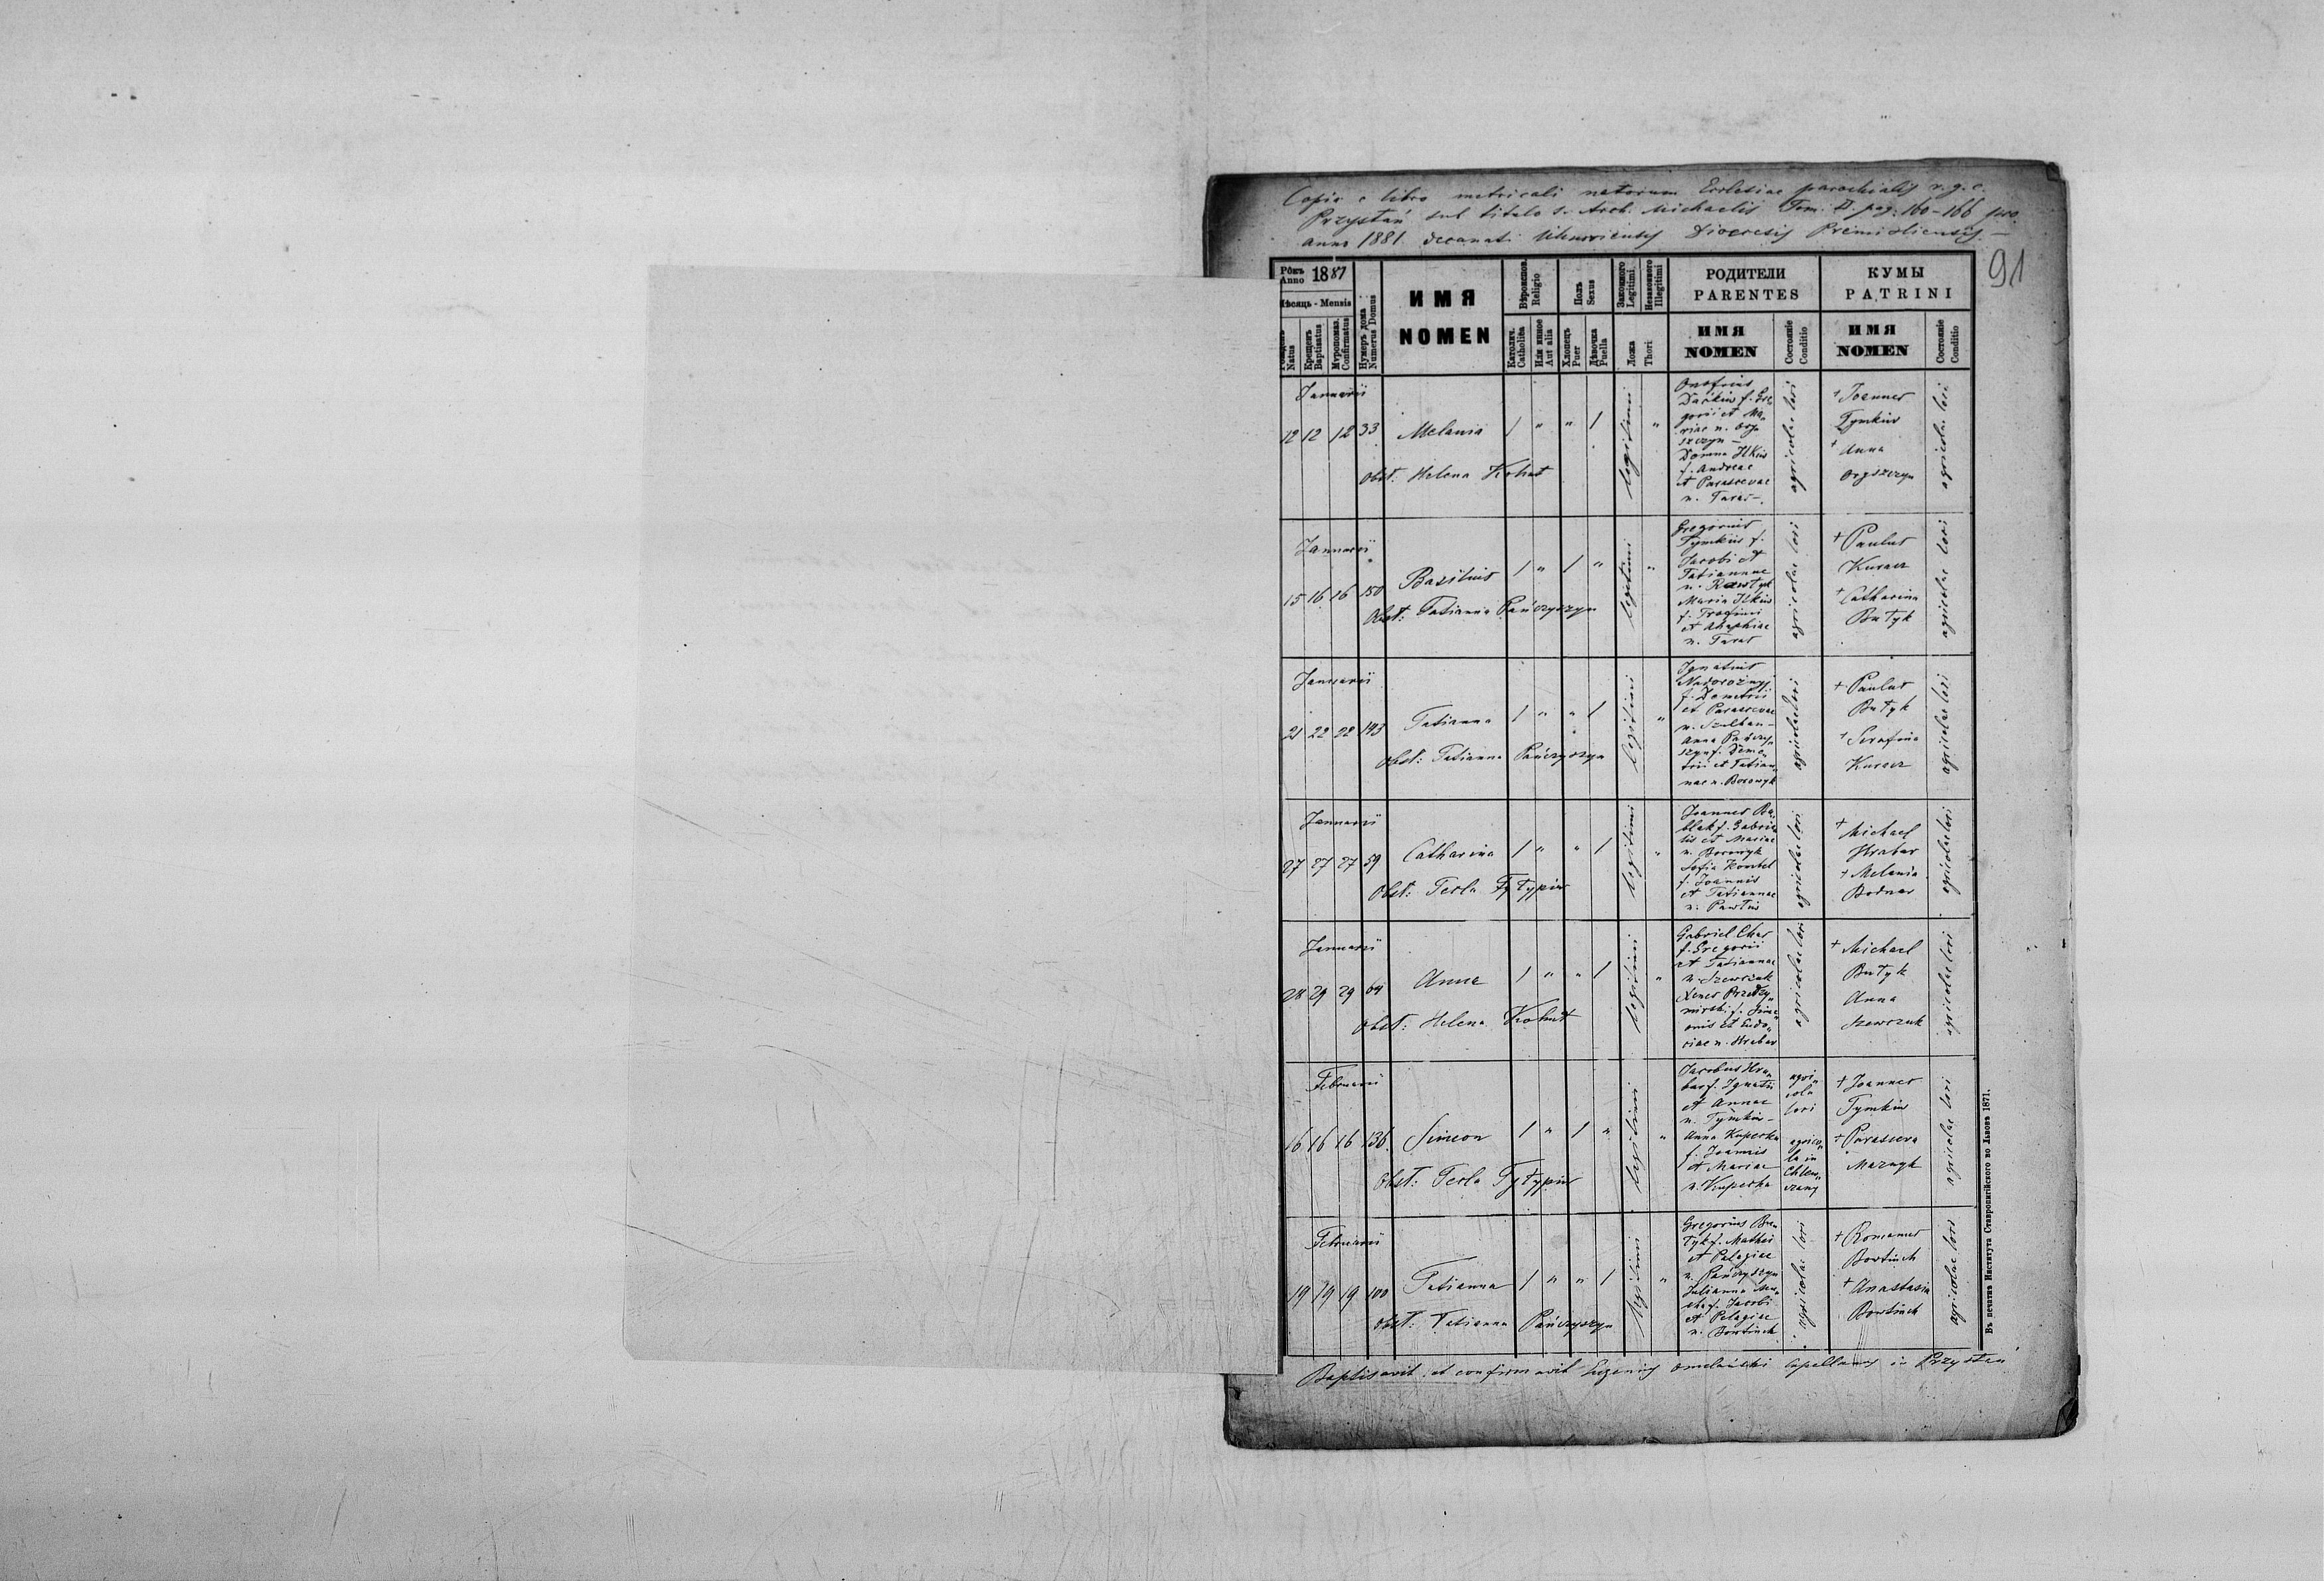 Copia e libro metricali natorum Ecclesiae parochialis r.g.c.
Przystań sub titulo s. Arch. Michaelis Tom. II. pag. 160-166 pro
anno 1881 decanati Uhnoviensis Dioecesis Premisliensis.—
91
Рôкъ
Anno 1881
Мѣсяць - Mensis
Natus
Крещенъ
Baptisatus
Мѵропомаз.
Confirmatus
Нумеръ дома
Numerus Domus
ИМЯ
NOMEN
Вѣроиспов.
Religio
Католич.
Catholica
Или инное
Aut alia
Полъ
Sexus
Хлопецъ
Puer
Дѣвочка
Puella
Законного
Legitimi
Незаконного
Illegitimi
Ложа
Thori
РОДИТЕЛИ
PARENTES
ИМЯ
NOMEN
Состояніе
Conditio
КУМЫ
PATRINI
ИМЯ
NOMEN
Состояніе
Conditio
Januarii
12 12 12 33 Melania / " " / legitimi "
Obst: Helena Kohut
Onofrius
f. Gre„
gorii et Ma„
riae n. Ory„
szczyn —
Domna Ilkiw
f. Andreae
et Parascevae
n. Taras —
agricolae loci
+ Joannes
Tymkiw
+ Anna
Oryszczyn
agricolae loci
Januarii
15 16 16 150 Basilius / " / " legitimi "
Obst: Tatianna Pańczyszyn
Gregorius
Tymkiw f.
Jacobi et
Tatiannae
n.
Maria Ilkiw
f. Trofimi
et Ahaphiae
n. Taras
agricolae loci
+ Paulus
Kuracz
+ Catharina
Butyk
agricolae loci
Januarii
21 22 22 143 Tatianna / " " / legitimi "
Obst: Tatianna Pańczyszyn
Ignatius
f. Demetrii
et Parascevae
n.
Anna Pańczy„
szyn f. Deme„
trii et Tatian„
nae n. Borowyk
agricolae loci
+ Paulus
Butyk
+ Serafina
Kuracz
agricolae loci
Januarii
27 27 27 59 Catharina / " " / legitimi "
Obst: Tecla Fytypiw
Joannes Ba„
blak f. Gabrie„
lis et Mariae
n. Borowyk
Sofia
f. Joannis
et Tatiannae
n. Pawliw
agricolae loci
+ Michael
Hrabar
+ Melania
Bodnar
agricolae loci
Januarii
28 29 29 64 Anna / " " / legitimi "
Obst: Helena Kohut
Gabriel
f. Gregorii
et Tatiannae
n. Szewczuk
f. Sime„
onis et Eudo„
ciae n. Hrabar
agricolae loci
+ Michael
Butyk
Anna
Szewczuk
agricolae loci
Februarii
16 16 16 136 Simeon / " / " legitimi "
Obst: Tecla Fytypiw
Jacobus Hra„
bar f. Ignatii
et Annae
n. Tymkiw —
Anna Kuperka
f. Joannis
et Mariae
n. Kuperka
agri„
cola
loci
agrico„
la in
+ Joannes
Tymkiw
+ Parasceva
Maznyk
agricolae loci
Februarii
19 19 19 100 Tatianna / " " / legitimi "
Obst: Tatianna Pańczyszyn
Gregorius Bu„
tyk f. Mathei
et Pelagiae
n. Pańczyszyn
Julianna
f. Jacobi
et Pelagiae
n. Bowtiuch
agricolae loci
+ Romanus
Bowtiuch
+ Anastasia
Bowtiuch
agricolae loci
Въ печатнѣ Института Ставропигійского во Львовѣ 1871.
Baptisavit et confirmavit Eugenius Omelański capellanus in Przystań